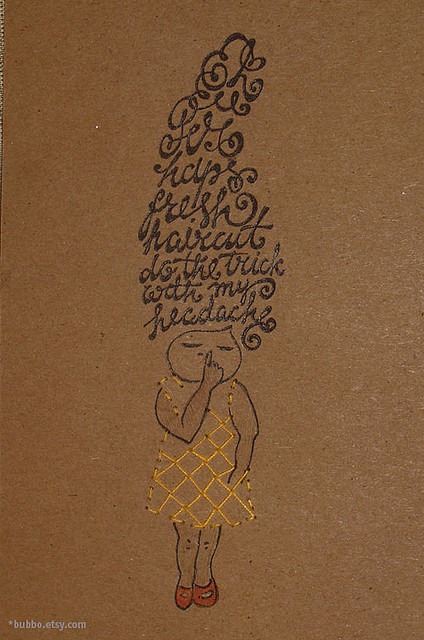 Eh
eu
Per
haps
fresh
haircut
do the trick
with my
headache
*bubbo.etsy.com